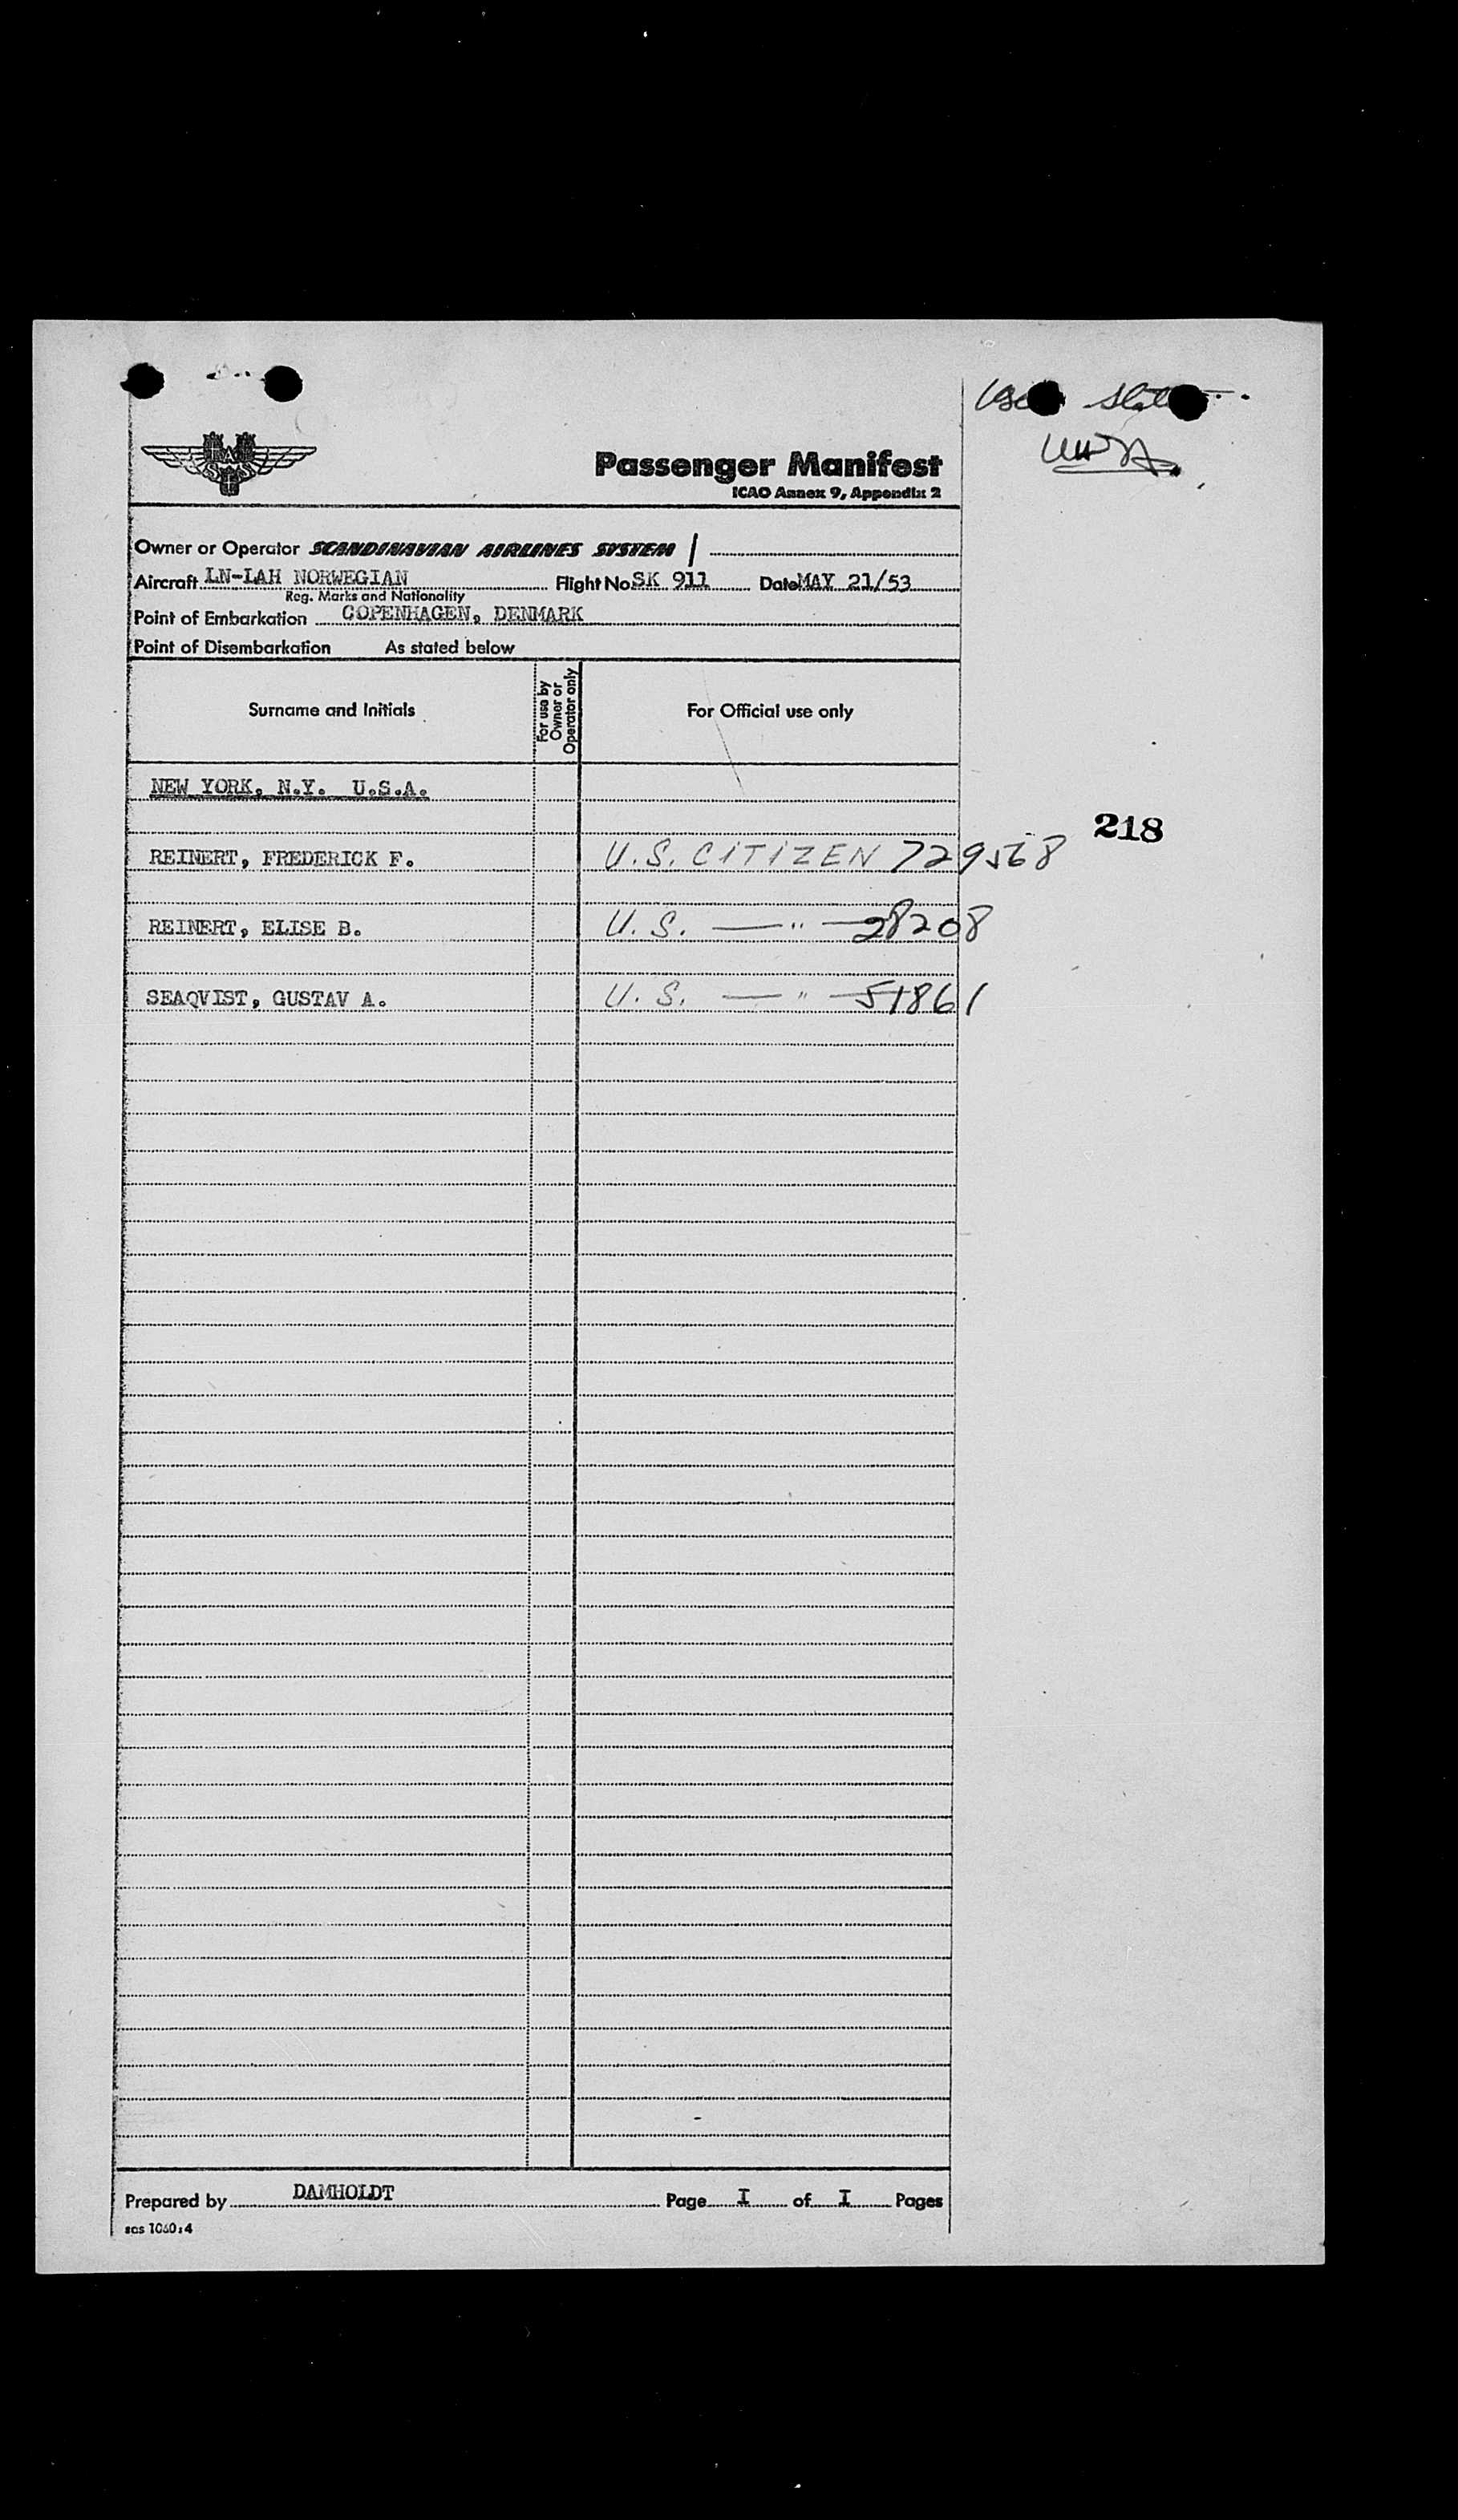 Passenger Manifest
ICAO Annex 9, Appendix 2
Owner or Operator SCANDINAVIAN AIRLINES SYSTEM /
Aircraft LN-LAH NORWEGIAN Flight No SK 911 Date MAY 21/53
Reg. Marks and Nationality
Point of Embarkation COPENHAGEN, DENMARK
Point of Disembarkation As stated below
Surname and Initials
For use by
Owner or
Operator only
For Official use only
NEW YORK, N.Y. U.S.A.
218
REINERT, FREDERICK F. U.S. CITIZEN 729568
REINERT, ELISE B. U.S. — " — 28208
SEAQVIST, GUSTAV A. U.S. — " — 51861
Prepared by DAMHOLDT Page I of I Pages
sas 1060:4